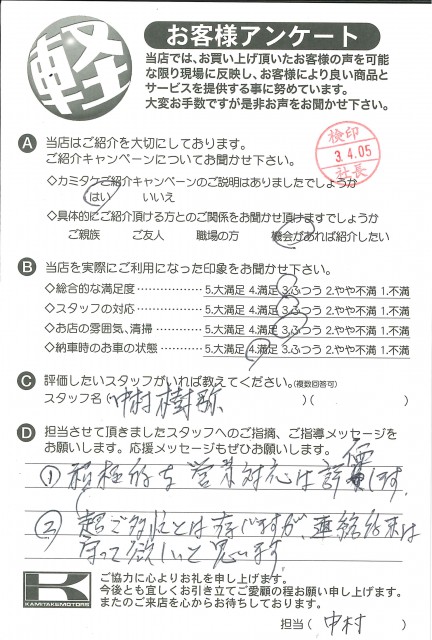 軽
お客様アンケート
当店では、お買い上げ頂いたお客様の声を可能
な限り現場に反映し、お客様により良い商品と
サービスを提供する事に努めています。
大変お手数ですが是非お声をお聞かせ下さい。
A 当店はご紹介を大切にしております。
ご紹介キャンペーンについてお聞かせ下さい。
検印
3.4.05
社長
◇カミタケご紹介キャンペーンのご説明はありましたでしょうか
はい いいえ
◇具体的にご紹介頂ける方とのご関係をお聞かせ頂けますでしょうか
ご親族 ご友人 職場の方 機会があれば紹介したい
B 当店を実際にご利用になった印象をお聞かせ下さい。
◇総合的な満足度………………5.大満足 4.満足 3.ふつう 2.やや不満 1.不満
◇スタッフの対応………………5.大満足 4.満足 3.ふつう 2.やや不満 1.不満
◇お店の雰囲気、清掃…………5.大満足 4.満足 3.ふつう 2.やや不満 1.不満
◇納車時のお車の状態…………5.大満足 4.満足 3.ふつう 2.やや不満 1.不満
C 評価したいスタッフがいれば教えてください。(複数回答可)
スタッフ名(中村樹弥 )( )
D 担当させて頂きましたスタッフへのご指摘、ご指導メッセージを
お願いします。応援メッセージもぜひお願いします。
① 積極的な営業対応は評価します。
② 超ご多忙とは存じますが、連絡約束は
守って欲しいと思います。
K
KAMITAKE MOTORS
ご協力に心よりお礼を申し上げます。
今後とも宜しくお引き立てご愛顧の程お願い申し上げます。
またのご来店を心からお待ちしております。
担当(中村 )